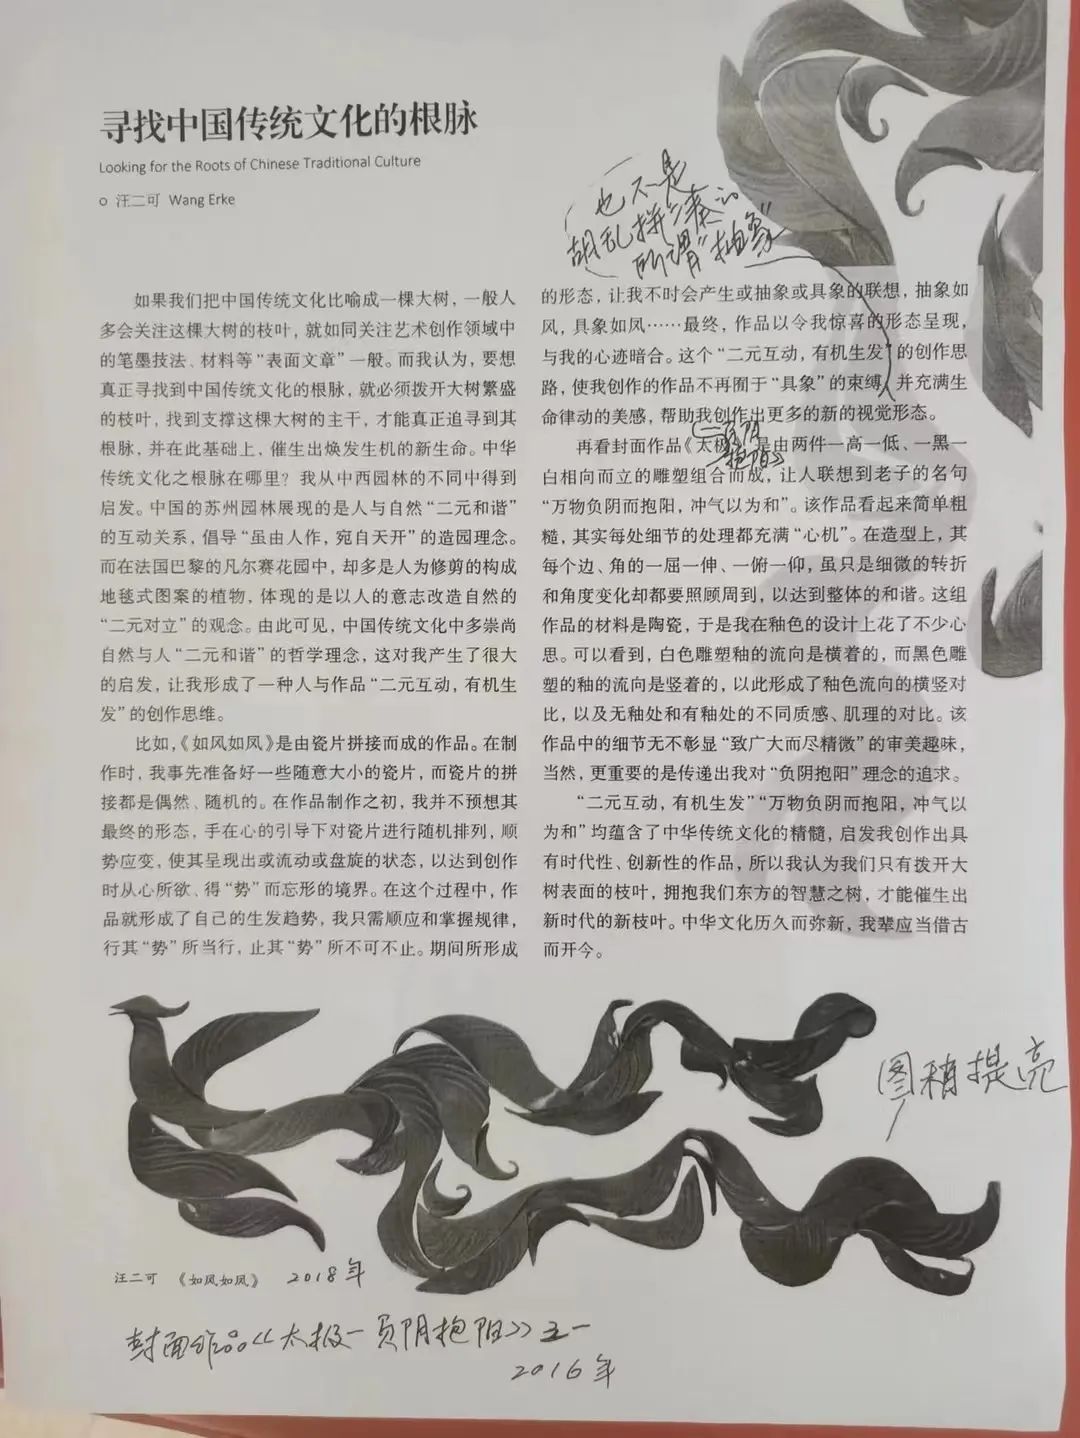 寻找中国传统文化的根脉
Looking for the Roots of Chinese Traditional Culture
○ 汪二可 Wang Erke
如果我们把中国传统文化比喻成一棵大树，一般人
多会关注这棵大树的枝叶，就如同关注艺术创作领域中
的笔墨技法、材料等“表面文章”一般。而我认为，要想
真正寻找到中国传统文化的根脉，就必须拨开大树繁盛
的枝叶，找到支撑这棵大树的主干，才能真正追寻到其
根脉，并在此基础上，催生出焕发生机的新生命。中华
传统文化之根脉在哪里？我从中西园林的不同中得到
启发。中国的苏州园林展现的是人与自然“二元和谐”
的互动关系，倡导“虽由人作，宛自天开”的造园理念。
而在法国巴黎的凡尔赛花园中，却多是人为修剪的构成
地毯式图案的植物，体现的是以人的意志改造自然的
“二元对立”的观念。由此可见，中国传统文化中多崇尚
自然与人“二元和谐”的哲学理念，这对我产生了很大
的启发，让我形成了一种人与作品“二元互动，有机生
发”的创作思维。
比如，《如风如凤》是由瓷片拼接而成的作品。在制
作时，我事先准备好一些随意大小的瓷片，而瓷片的拼
接都是偶然、随机的。在作品制作之初，我并不预想其
最终的形态，手在心的引导下对瓷片进行随机排列，顺
势应变，使其呈现出或流动或盘旋的状态，以达到创作
时从心所欲、得“势”而忘形的境界。在这个过程中，作
品就形成了自己的生发趋势，我只需顺应和掌握规律，
行其“势”所当行，止其“势”所不可不止。期间所形成
也不是
胡乱拼凑的
所谓“抽象”
的形态，让我不时会产生或抽象或具象的联想，抽象如
风，具象如凤……最终，作品以令我惊喜的形态呈现，
与我的心迹暗合。这个“二元互动，有机生发”的创作思
路，使我创作的作品不再囿于“具象”的束缚，并充满生
命律动的美感，帮助我创作出更多的新的视觉形态。
再看封面作品《太极》，是由两件一高一低、一黑一
一负阴
抱阳》
白相向而立的雕塑组合而成，让人联想到老子的名句
“万物负阴而抱阳，冲气以为和”。该作品看起来简单粗
糙，其实每处细节的处理都充满“心机”。在造型上，其
每个边、角的一屈一伸、一俯一仰，虽只是细微的转折
和角度变化却都要照顾周到，以达到整体的和谐。这组
作品的材料是陶瓷，于是我在釉色的设计上花了不少心
思。可以看到，白色雕塑釉的流向是横着的，而黑色雕
塑的釉的流向是竖着的，以此形成了釉色流向的横竖对
比，以及无釉处和有釉处的不同质感、肌理的对比。该
作品中的细节无不彰显“致广大而尽精微”的审美趣味，
当然，更重要的是传递出我对“负阴抱阳”理念的追求。
“二元互动，有机生发”“万物负阴而抱阳，冲气以
为和”均蕴含了中华传统文化的精髓，启发我创作出具
有时代性、创新性的作品，所以我认为我们只有拨开大
树表面的枝叶，拥抱我们东方的智慧之树，才能催生出
新时代的新枝叶。中华文化历久而弥新，我辈应当借古
而开今。
图稍提亮
汪二可 《如风如凤》 2018年
封面作品《太极一负阴抱阳》之一
2016年